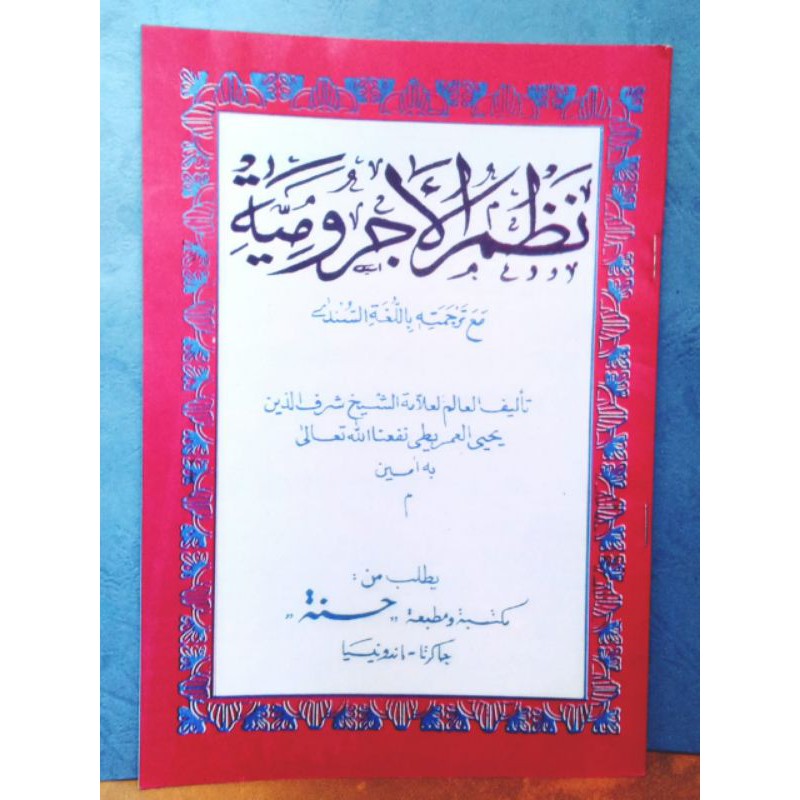 نَظْمُ الْأَجُرُّومِيَّةِ
مَعَ تَرْجَمَتِهِ بِاللُّغَةِ السُّنْدٰى
تأليف العالم لعلامة الشيخ شرف الدين
يحيى العمريطى نفعنا الله تعالى
به امين
م
يطلب من :
مكتبة ومطبعة „حسنة„
جاكرتا - اندونيسيا